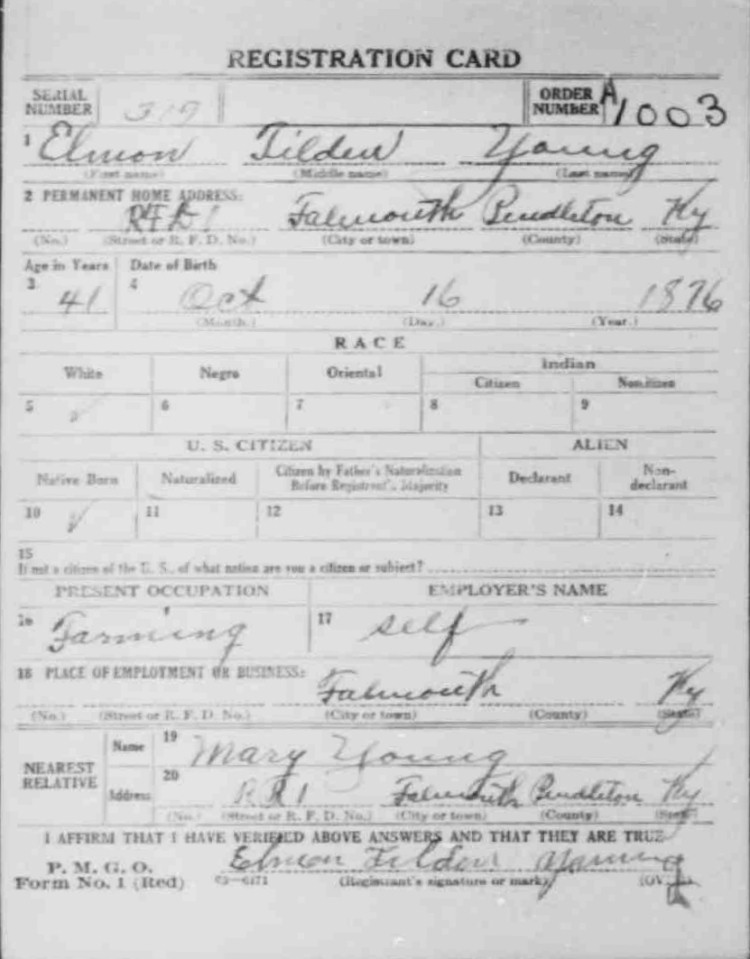 REGISTRATION CARD
SERIAL NUMBER 319 ORDER NUMBER A1003
1 Elmon Tilden Young
(First name) (Middle name) (Last name)
2 PERMANENT HOME ADDRESS:
RFD 1 Falmouth Pendleton Ky
(No.) (Street or R. F. D. No.) (City or town) (County) (State)
Age in Years Date of Birth
3 41 4 Oct 16 1876
(Month.) (Day.) (Year.)
RACE
White Negro Oriental Indian
Citizen Noncitizen
5 6 7 8 9
U. S. CITIZEN ALIEN
Native Born Naturalized Citizen by Father's Naturalization Before Registrant's Majority Declarant Non-declarant
10 ✓ 11 12 13 14
15
If not a citizen of the U. S., of what nation are you a citizen or subject?
PRESENT OCCUPATION EMPLOYER'S NAME
16 Farming 17 self
18 PLACE OF EMPLOYMENT OR BUSINESS:
Falmouth Ky
(No.) (Street or R. F. D. No.) (City or town) (County) (State)
NEAREST RELATIVE Name 19 Mary Young
Address 20 RR1 Falmouth Pendleton Ky
(No.) (Street or R. F. D. No.) (City or town) (County) (State)
I AFFIRM THAT I HAVE VERIFIED ABOVE ANSWERS AND THAT THEY ARE TRUE
P. M. G. O. Elmon Tilden Young
Form No. 1 (Red) 03—6171 (Registrant's signature or mark) (OVER)